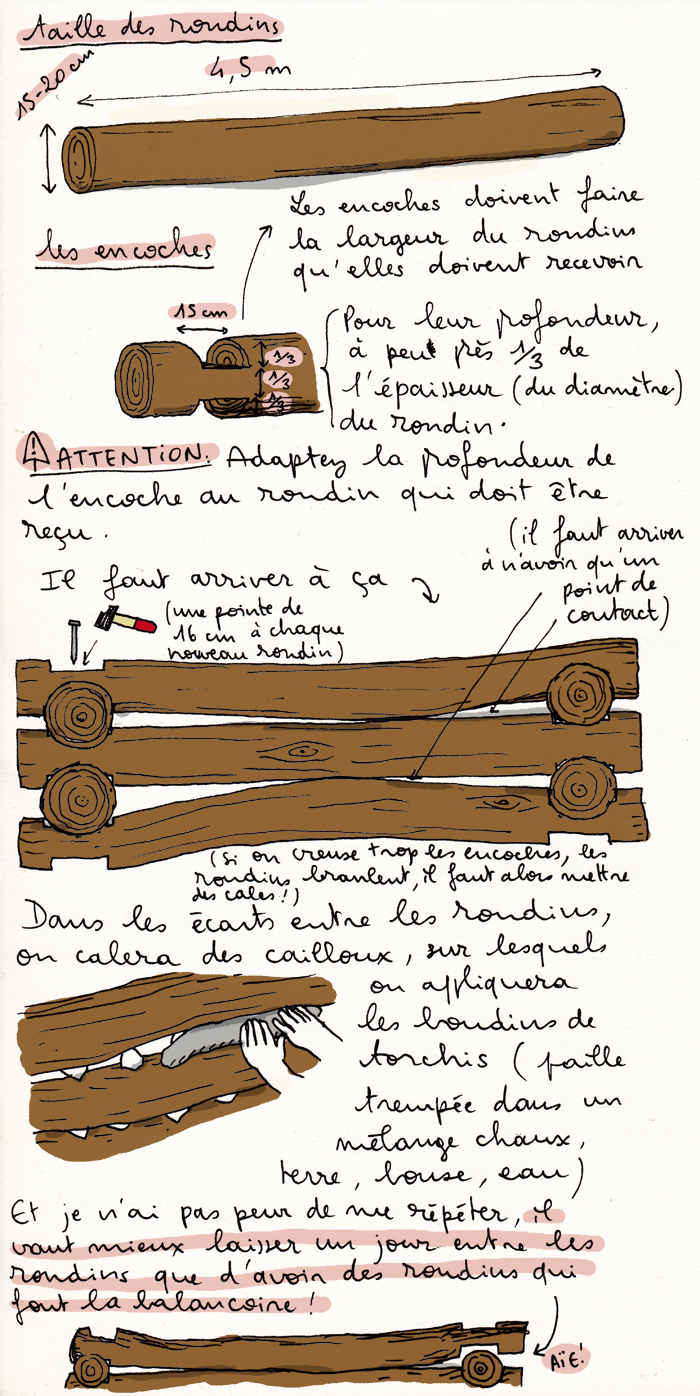 taille des rondins
15-20 cm
4,5 m
Les encoches doivent faire
la largeur du rondin
qu'elles doivent recevoir
les encoches
15 cm
1/3
1/3
1/3
Pour leur profondeur,
à peu près 1/3 de
l'épaisseur (du diamètre)
du rondin.
ATTENTION: Adaptez la profondeur de
l'encoche au rondin qui doit être
reçu.
(il faut arriver
à n'avoir qu'un
point de
contact)
Il faut arriver à ça
(une pointe de
16 cm à chaque
nouveau rondin)
(Si on creuse trop les encoches, les
rondins branlent, il faut alors mettre
des cales!)
Dans les écarts entre les rondins,
on calera des cailloux, sur lesquels
on appliquera
les boudins de
torchis (paille
trempée dans un
mélange chaux,
terre, bouse, eau)
Et je n'ai pas peur de me répéter, il
vaut mieux laisser un jour entre les
rondins que d'avoir des rondins qui
font la balancoire!
AïE!